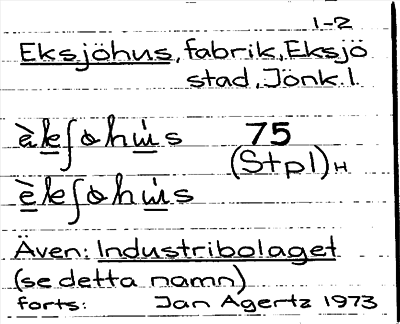 1-2
Eksjöhus, fabrik, Eksjö
stad, Jönk.l.
75
(Stpl)H
Även: Industribolaget
(se detta namn)
forts: Jan Agertz 1973